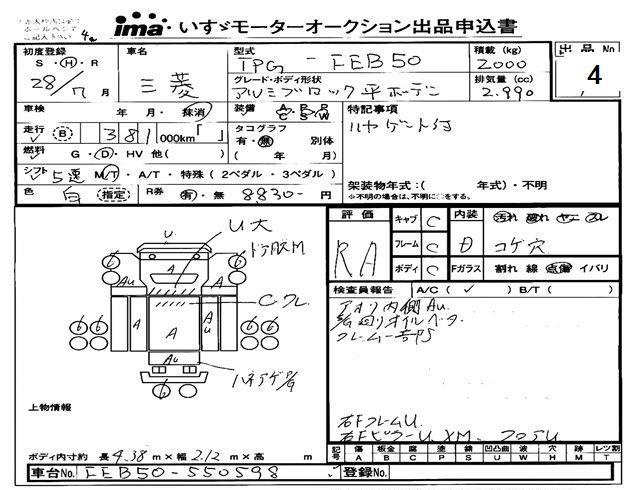 ima いすゞモーターオークション出品申込書
初度登録 車名 型式 積載 (kg) 出品 No
S・H・R 三菱 TPG-FEB50 2000 4
28/7月 グレード・ボディ形状 排気量 (cc)
アルミブロック平ボデー 2.990
車検 年 月・抹消 装備 特記事項
走行 B 381,000km「 」 タコグラフ
有・無 別体
燃料 G・D・HV 他( ) ( 年 月)
シフト 5速 M/T・A/T・特殊 (2ペダル・3ペダル) 架装物年式:( 年式)・不明
色 白 指定 R券 有・無 8830-円 ※不明の場合は、不明に○をする。
評価 キャブ C 内装 汚れ
RA フレーム C D コゲ穴
ボディ C Fガラス 割れ 線 点傷 イバリ
検査員報告 A/C ( ✓ ) B/T ( )
U大
U
A
Au
A A Au
Au
アオリ内側Au
オイルベタ
フレーム
上物情報
右FフレームU.
右FピラーU
ボディ内寸約 長 4.38 m×幅 2.12 m×高 m
記号 傷 A 板金 B 腐 C 塗 P 錆 S 凹凸曲 U 波 W 穴 H 跡 M レツ割 T
車台No. FEB50-550598 登録No.